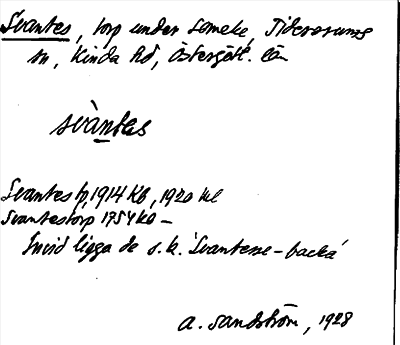 Svantes, torp under Lomeke, Tidersrums
sn, Kinda hd, Östergötl. län
svàntas
Svantes tp, 1914 Kb, 1920 ml
Svantestorp 1754 Kb –
Invid ligga de s.k. Svantesse-backa´
A. Sandström, 1928